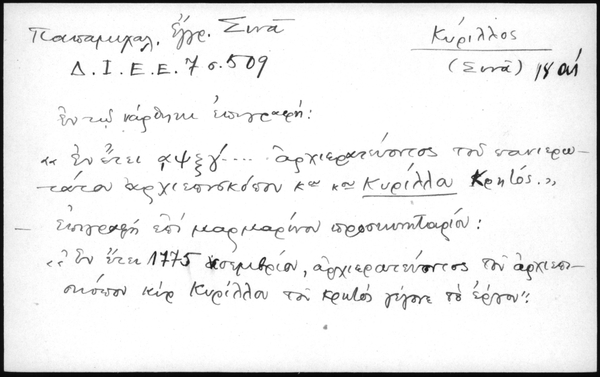 Παπαμιχαλ. Ἔγγρ. Σινᾶ
Κύριλλος
Δ.Ι.Ε.Ε. 7 σ. 509
(Σινᾶ) 18 αἰ
Ἐν τῷ νάρθηκι ἐπιγραφή:
«Ἐν ἔτει αψξγ.... ἀρχιερατεύοντος τοῦ πανιερω-
τάτου ἀρχιεπισκόπου κυ κυ Κυρίλλου Κρητός.»
– ἐπιγραφή ἐπί μαρμαρίνου προσκυνηταρίου:
«Ἐν ἔτει 1775 , ἀρχιερατεύοντος τοῦ ἀρχιεπι-
σκόπου κύρ Κυρίλλου τοῦ Κρητός γέγονε τό ἔργον»: